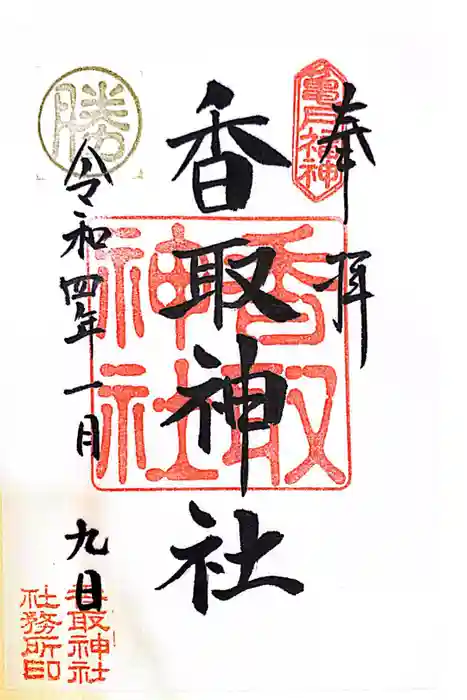 奉拝
亀戸福神
香取神社
香取神社
勝
令和四年一月九日
香取神社
社務所印